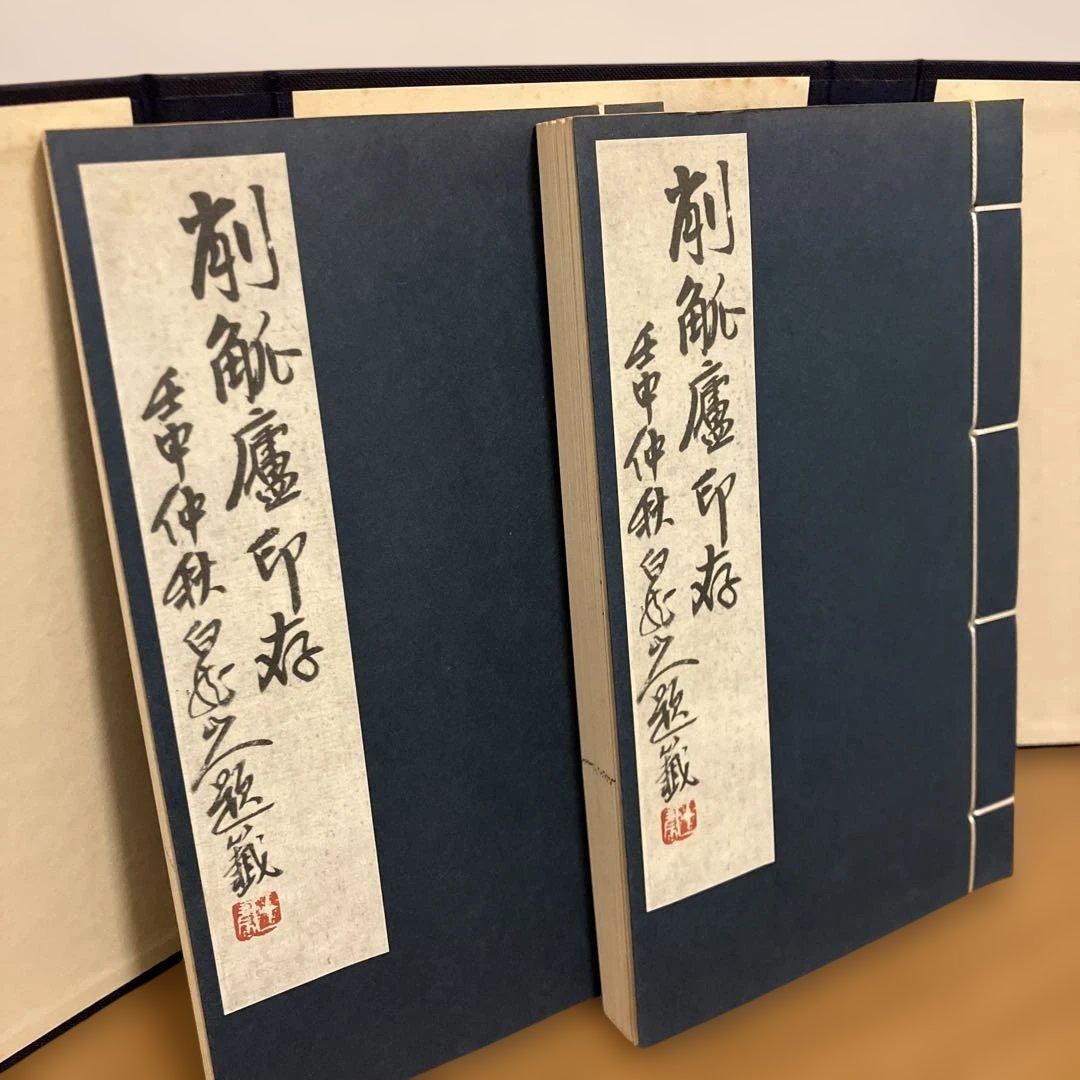 削觚廬印存
壬申仲秋白龍山人題籤
削觚廬印存
壬申仲秋白龍山人題籤